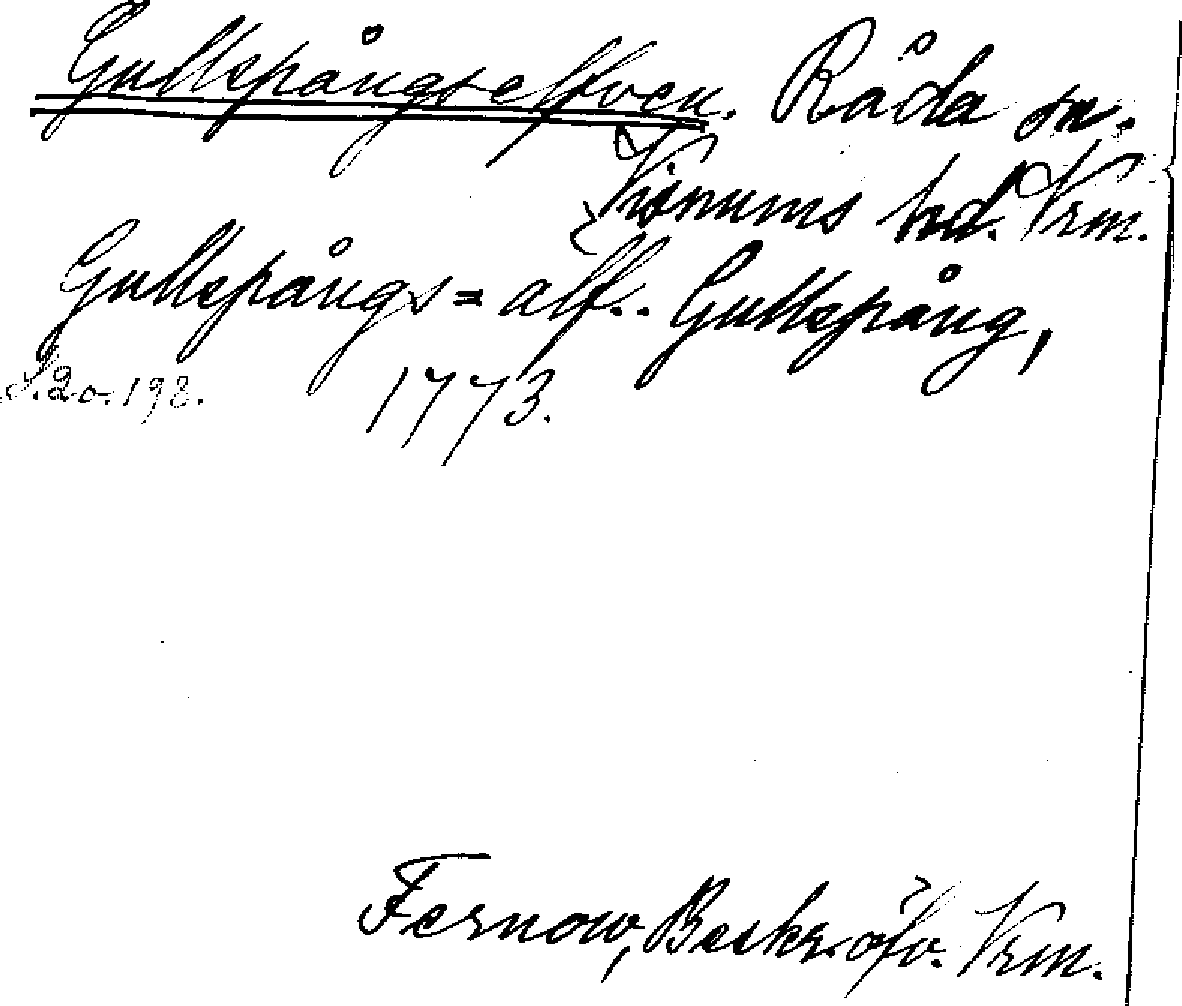 Gullspångselfven. Råda sn.
Visnums hd. Vrm.
Gullspångs=älf.. Gullspång,
S. 20. 198. 1773.
Fernow, Beskr. öfv. Vrm.